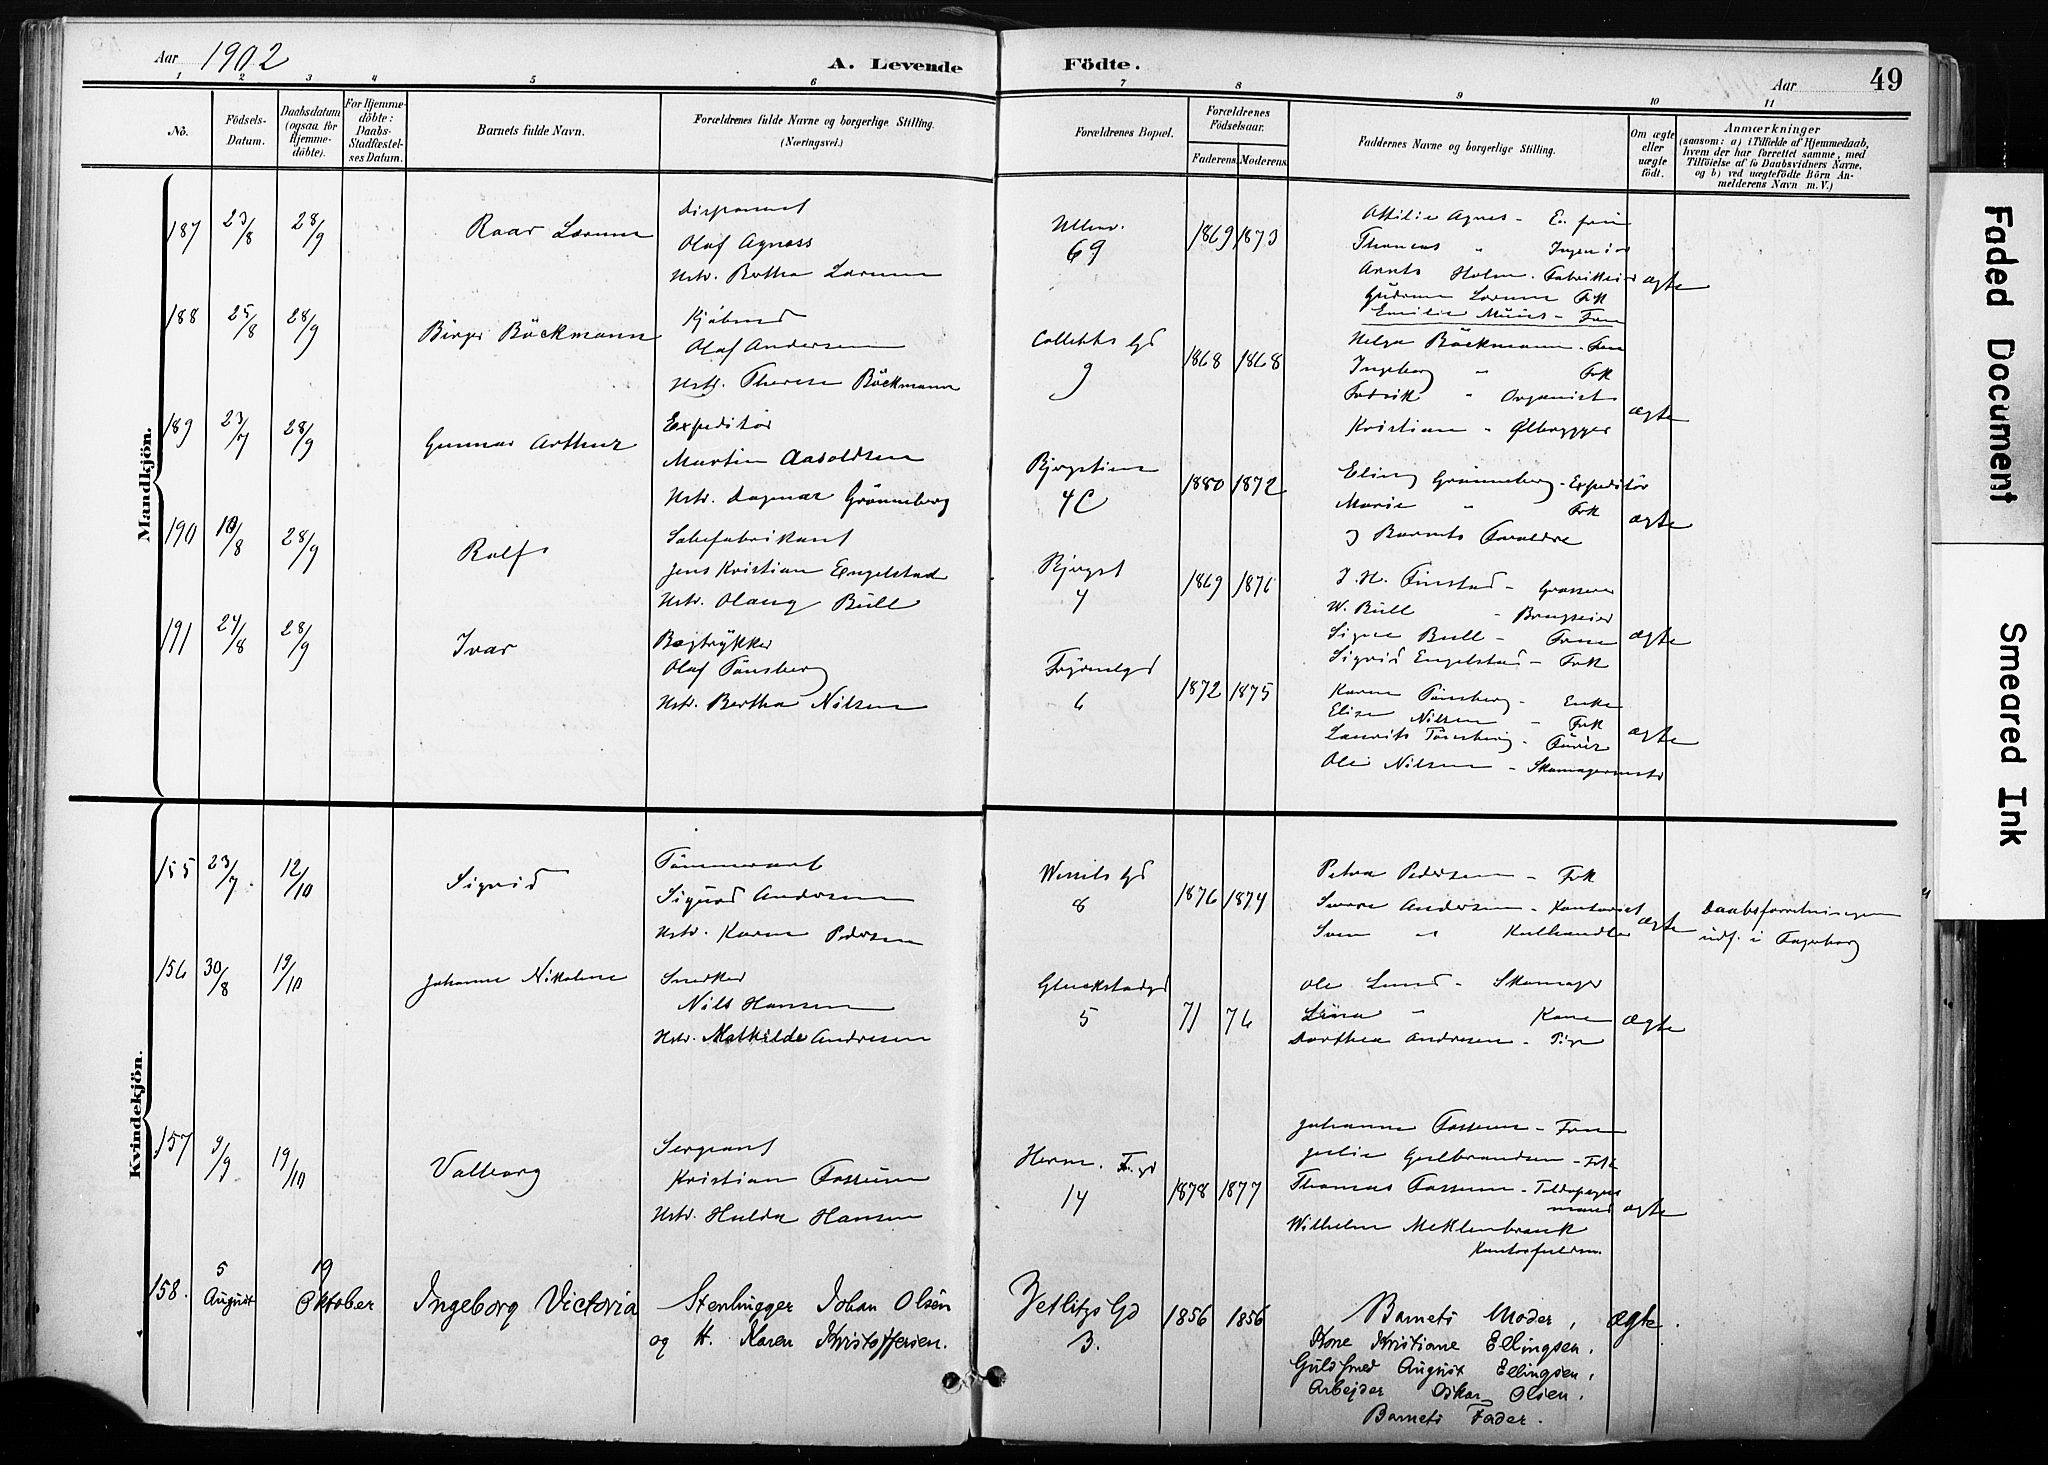 Aar 1902
A. Levende Födte.
Aar 49
1 2 3 4 5 6 7 8 9 10 11
No.
Födsels-Datum.
Daabsdatum (ogsaa for Hjemme-döbte).
For Hjemme-döbte: Daabs-Stadfæstel-ses Datum.
Barnets fulde Navn.
Forældrenes fulde Navne og borgerlige Stilling. (Næringsvei.)
Forældrenes Bopæl.
Forældrenes Födselsaar.
Faderens. Moderens.
Faddernes Navne og borgerlige Stilling.
Om ægte eller uægte födt.
Anmærkninger
(saasom: a) i Tilfælde af Hjemmedaab,
hvem der har forrettet samme, med
Tilföielse af to Daabsvidners Navne,
og b) ved uægtefödte Börn An-
melderens Navn m. V.)
Mandkjön.
187 23/8 28/9 Roar Lorum
Disponent
Olaf Agnæss
Hstr. Bertha Lorum
Ullev. 69
1869 1873
Ottilie Agnes - E. frue
Thomas " Ingeniør
Holm - Fabrikeier
Gudrun Lorum Frk
Emilie - Frue
ægte
188 25/8 28/9 Birger Böckmann
Kjøbmd
Olaf Andersen
Hstr. Therese Böckmann
Colletts Gd 9
1868 1868
Helga Böckmann - Frue
Ingeborg " Frk
Fredrik " Organist
Kristian " Ølbrygger
ægte
189 23/7 28/9 Gunnar Arthur
Expeditør
Martin Aasoldsen
Hstr. Dagmar Grønneberg
Bjergstien 4C
1880 1872
Grønneberg - Expeditør
Marie " Frk
og Barnets Forældre
ægte
190 10/8 28/9 Rolf
Sæbefabrikant
Jens Kristian Engelstad
Hstr. Olaug Bull
Bjergst 4
1869 1876
J. H. Finstad - Grosserer
W. Bull - Brugseier
Signe Bull - Frue
Sigrid Engelstad - Frk
ægte
191 24/8 28/9 Ivar
Bogtrykker
Olaf Tønsberg
Hstr. Bertha Nilsen
6
1872 1875
Karen Tønsberg - Enke
Elise Nilsen - Frk
Laurits Tønsberg -
Ole Nilsen - Skomagermester
ægte
Kvindekjön.
155 23/7 12/10 Sigrid
Tømmermand
Sigurd Andersen
Hstr. Karen Pedersen
Wessels Gd 8
1876 1874
Petra Pedersen - Frk
Andersen - Kontorist
Sven " Kulhandler
ægte
Daabsforretningen
udf. i Fagerborg
156 30/8 19/10 Johanne Nikoline
Snedker
Nils Hansen
Hstr. Mathilde Andresen
Glückstadgd 5
71 76
Ole Lund - Skomager
Lina " Kone
Dorthea Andresen - Pige
ægte
157 9/9 19/10 Valborg
Sergeant
Kristian Fossum
Hstr. Hulda Hansen
Herm. F. gd 14
1878 1877
Johanne Fossum - Frue
Julie Gulbrandsen - Frk
Thomas Fossum - Toldopsyns
mand
Wilhelm Meklenbrauk
Kontorfuldm.
ægte
158. 5 August 19 Oktober Ingeborg Victoria
Stenhugger Johan Olsen
og H. Karen Kristoffersen.
Vetlitzs Gd 3.
1856 1856
Barnets Moder,
Kone Kristiane Ellingsen,
Guldsmed August Ellingsen,
Arbejder Oskar Olsen,
Barnets Fader.
ægte.
Faded Document
Smeared Ink